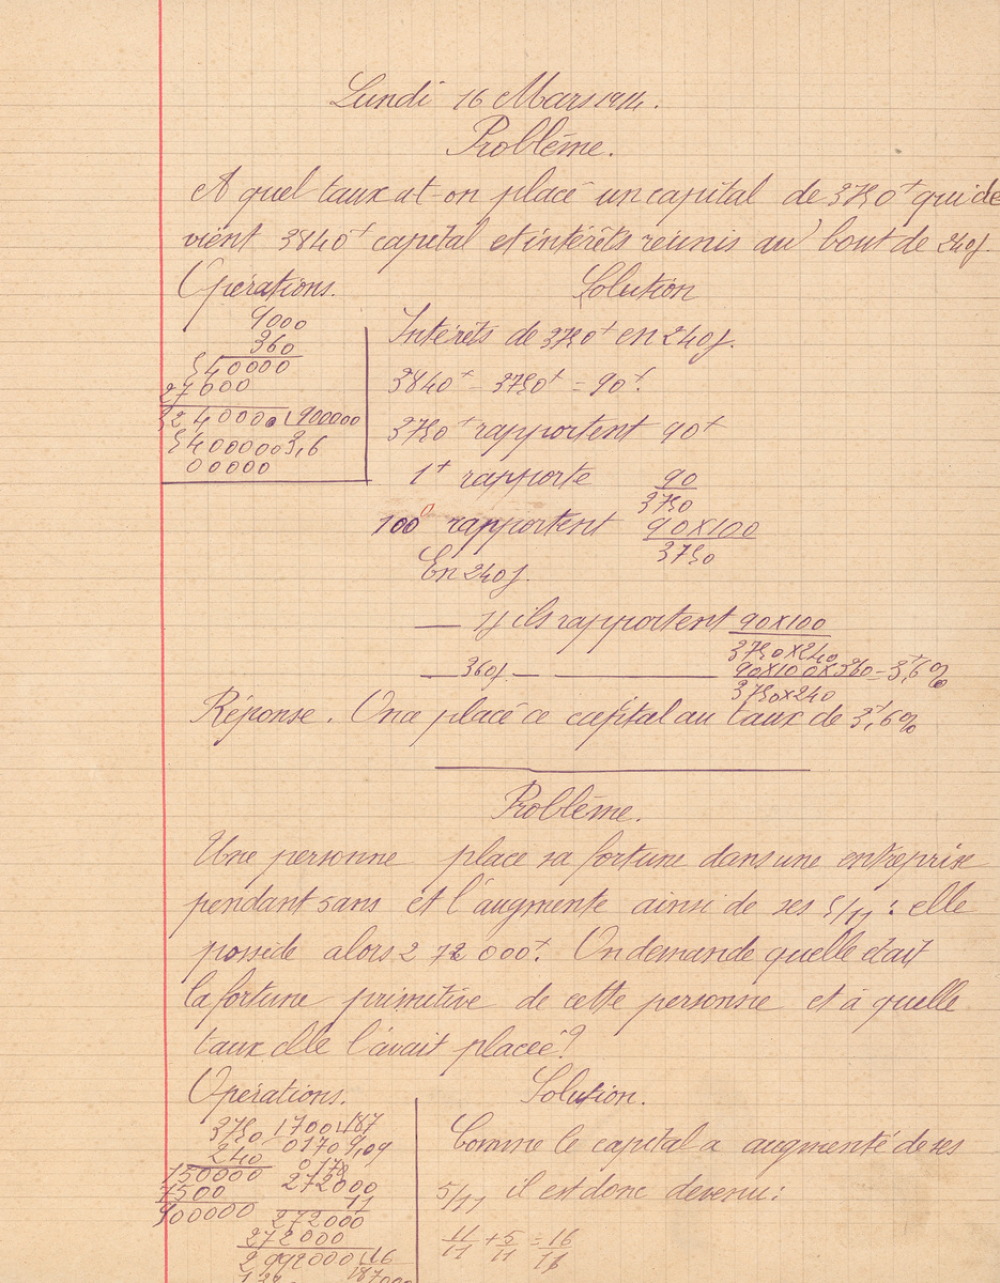 Lundi 16 Mars 1914.
Problème.
A quel taux at-on placé un capital de 3750f qui de
vient 3840f capital et intérêts réunis au bout de 240j.
Opérations.
Solution
9000
360
540000
27000
3240000 900000
5400000 3,6
00000
Intérêts de 3750f en 240j.
3840f - 3750f = 90f.
3750f rapportent 90f
1f rapporte 90/3750
100f rapportent 90x100/3750
En 240j.
— 1j ils rapportent 90x100/3750x240
— 360j. — — 90x100x360/3750x240 = 3f,6%
Réponse. On a placé ce capital au taux de 3f,6%
Problème.
Une personne place sa fortune dans une entreprise
pendant 5 ans et l'augmente ainsi de ses 5/11 : elle
possède alors 272 000f. On demande quelle était
la fortune primitive de cette personne et à quelle
taux elle l'avait placée?
Opérations.
Solution.
3750
240
150000
7500
900000
1700 187
0170 9,09
0170
272000
11
272000
272000
2992000 16
187000
Comme le capital a augmenté de ses
5/11 il est donc devenu:
11/11 + 5/11 = 16/11